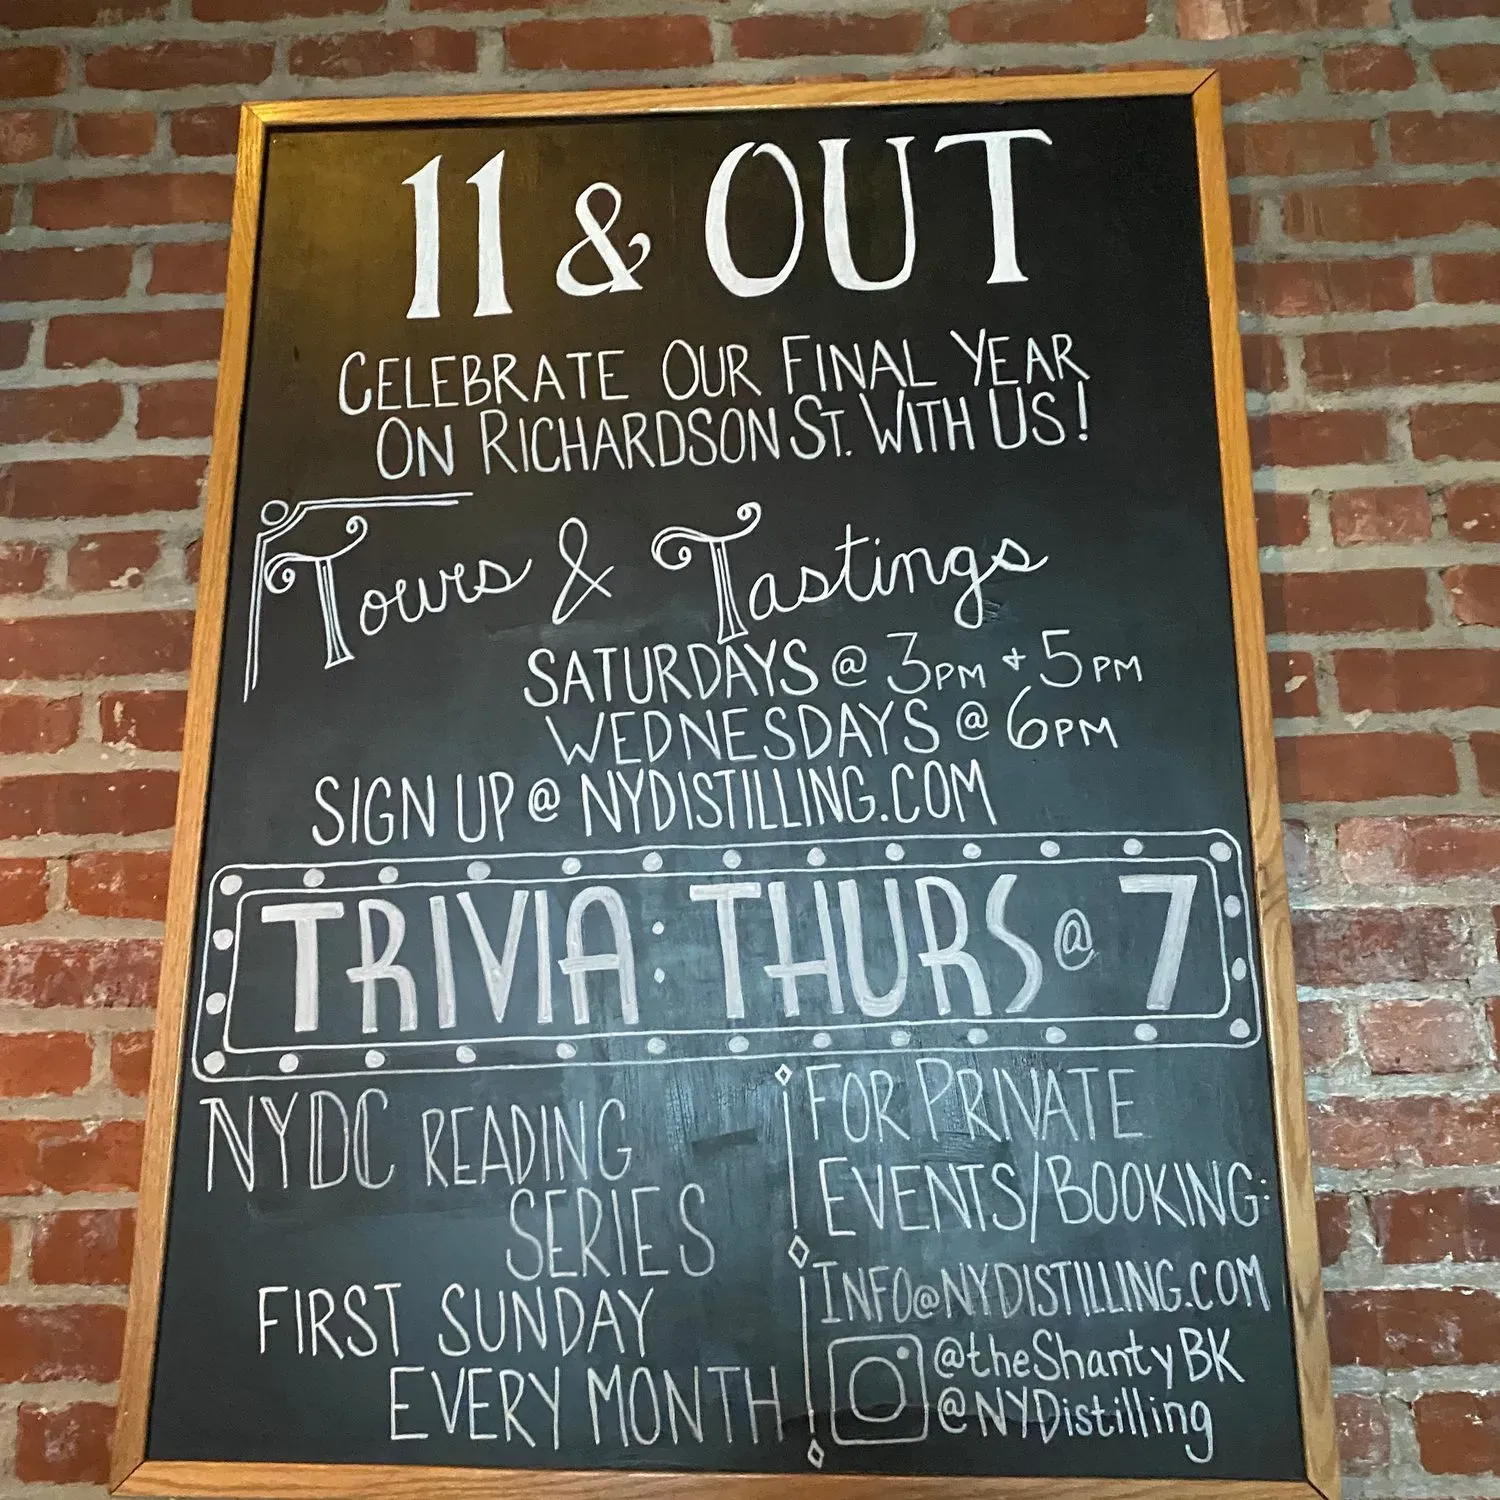 11 & OUT
CELEBRATE OUR FINAL YEAR
ON RICHARDSON ST. WITH US!
Tours & Tastings
SATURDAYS @ 3PM + 5PM
WEDNESDAYS @ 6PM
SIGN UP @ NYDISTILLING.COM
TRIVIA: THURS @ 7
NYDC READING
SERIES
FIRST SUNDAY
EVERY MONTH
FOR PRIVATE
EVENTS/BOOKING:
INFO@NYDISTILLING.COM
@theShantyBK
@NYDistilling